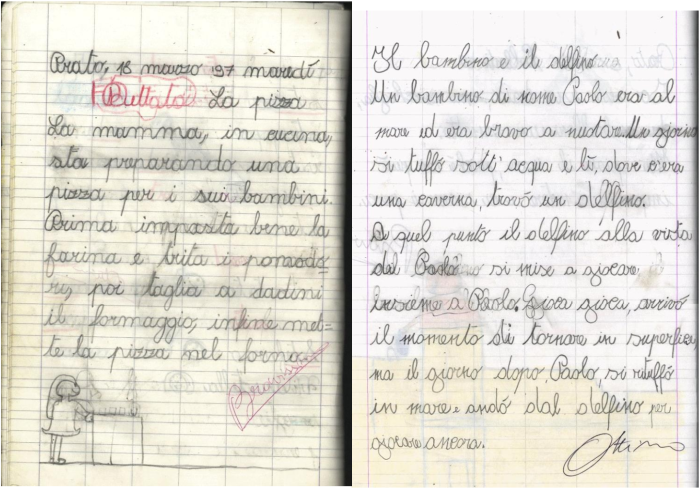 Prato, 18 marzo '97 màredí
Dettato: La pizza
La mamma, in cucina,
sta preparando una
pizza per i sui bambini.
Prima impasta bene la
farina e trita i pomodo-
ri, poi taglia a dadini
il formaggio, infine met-
te la pizza nel forno.
Il bambino e il delfino
Un bambino di nome Paolo era al
mare ed era bravo a nuotare. Un giorno
si tuffò sott'acqua e lì, dove c'era
una caverna, trovò un delfino.
A quel punto il delfino alla vista
del Paolo si mise a giocare
insieme a Paolo. Gioca gioca, arrivò
il momento di tornare in superfice,
ma il giorno dopo, Paolo, si rituffò
in mare e andò dal delfino per
giocare ancora.
Ottimo